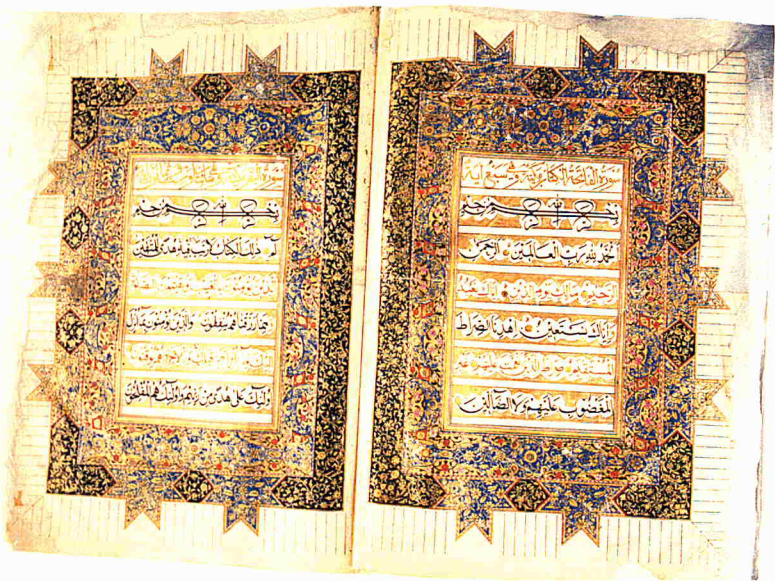 سورة الفاتحة الكتاب مكية وهي سبع اية
بسم الله الرحمن الرحيم
الحمد لله رب العالمين الرحمن
الرحيم مالك يوم الدين اياك نعبد
واياك نستعين اهدنا الصراط
المستقيم صراط الذين انعمت عليهم غير
المغضوب عليهم ولا الضالين
سورة البقرة
بسم الله الرحمن الرحيم
الم ذلك الكتاب لا ريب فيه هدى للمتقين
الذين يؤمنون بالغيب ويقيمون الصلوة
ومما رزقناهم ينفقون والذين يؤمنون بما انزل
اليك وما انزل من قبلك وبالاخرة هم يوقنون
اولئك على هدى من ربهم واولئك هم المفلحون